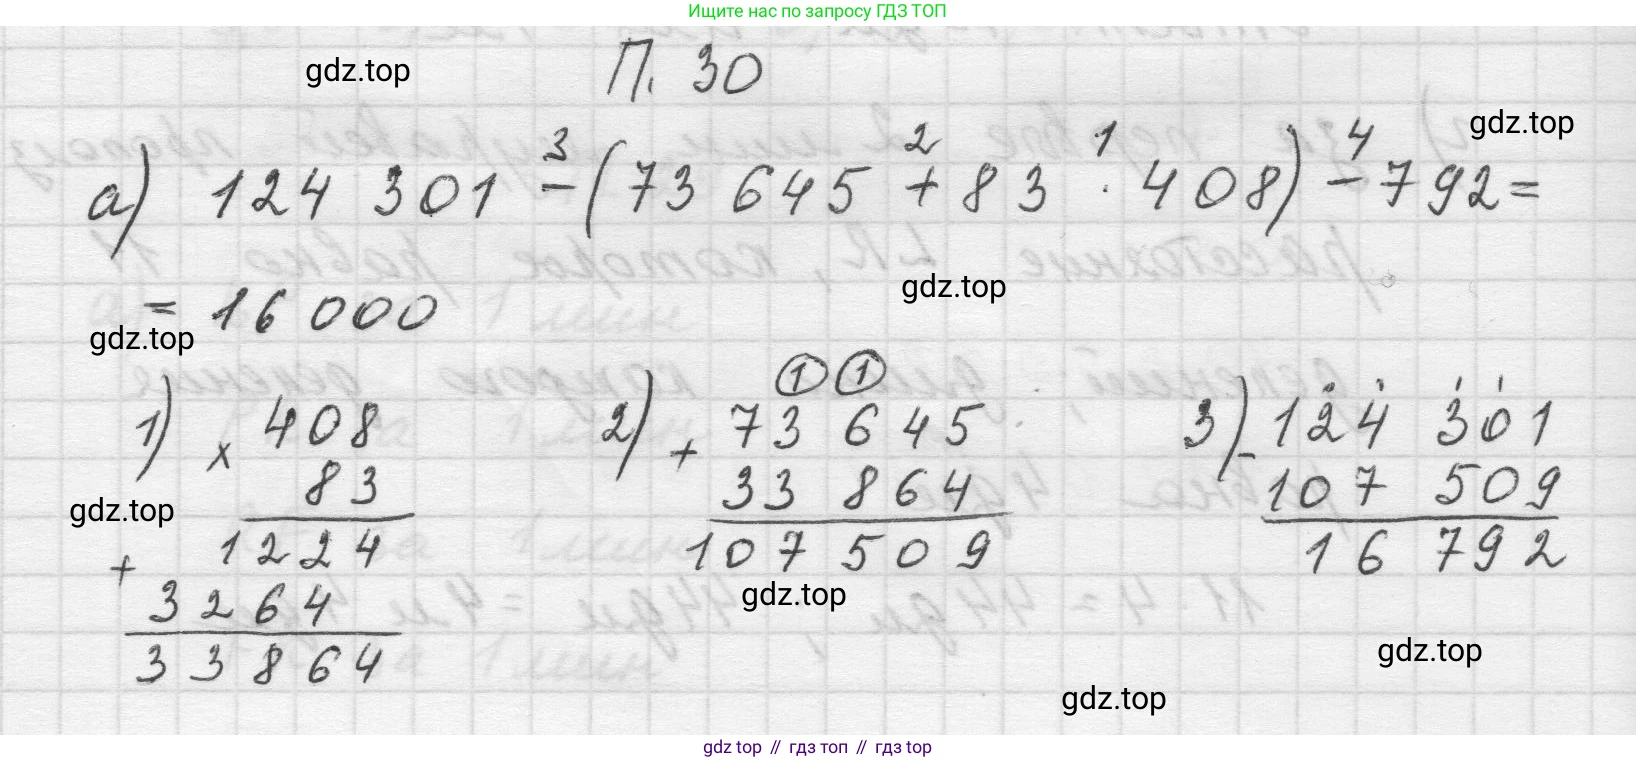 Ищите нас по запросу ГДЗ ТОП
gdz.top
П. 30
gdz.top
3 2 1 4
а) 124 301 - (73 645 + 83 · 408) - 792 =
gdz.top
= 16 000
gdz.top
1) × 408
83
+ 1224
3264
33864
2) 1 1
+ 73 645
33 864
107 509
3) - 124 301
107 509
16 792
gdz.top
gdz.top
gdz.top
gdz.top
gdz top // гдз топ // гдз top